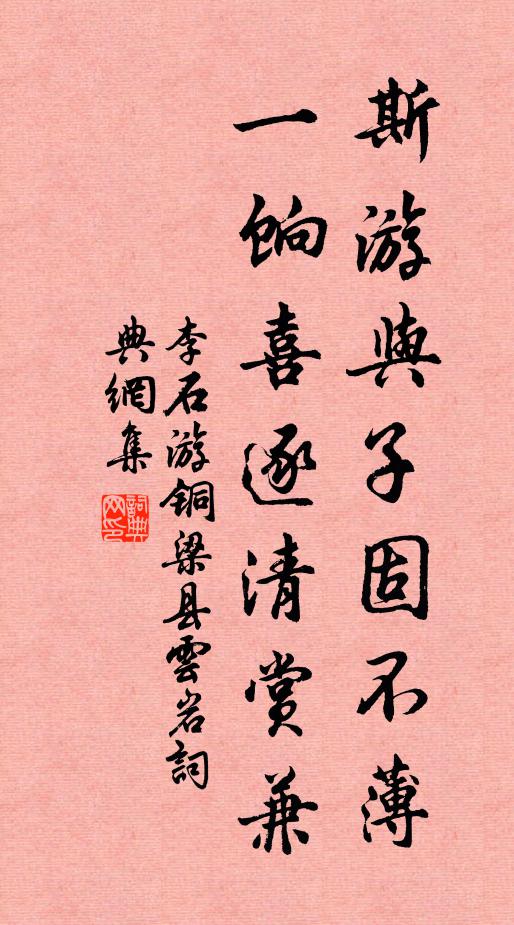 斯游與子固不薄
一餉喜逐清賞兼
李石游铜梁县雲岩詞
典網集
詞典网印